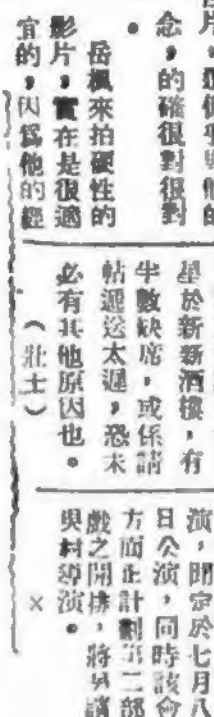 念，的確很對很對
。
岳楓來拍硬性的
影片，實在是很適
宜的，因爲他的經
星於新新酒樓，有
半數缺席，或係請
帖遞送太遲，恐未
必有其他原因也。
（壯士）
演，開定於七月八
日公演，同時該會
方面正計劃第二部
戲之開排，將另請
與村導演。
×